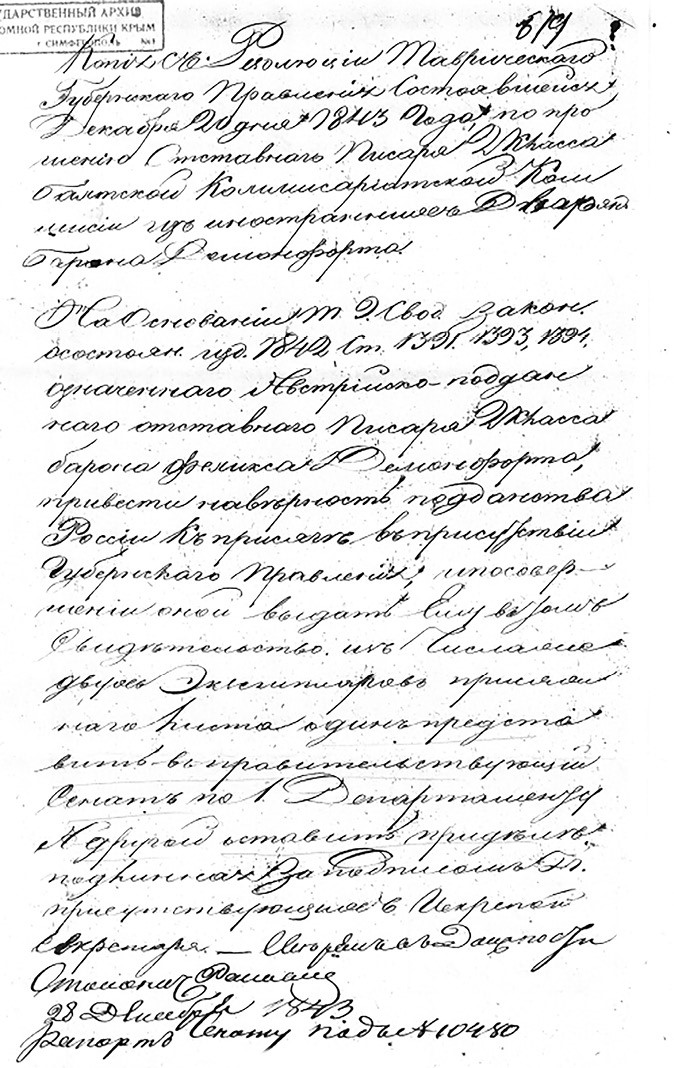 ГОСУДАРСТВЕННЫЙ АРХИВ
АВТОНОМНОЙ РЕСПУБЛИКИ КРЫМ
г. СИМФЕРОПОЛЬ №1
Копія съ Резолюціи Таврическаго
Губернскаго Правленія Состоявшейся
Декабря 20 дня 1843 Года, по про
шенію Отставнаго Писаря 2 Класса
балтской Коммисаріатской Ком
мисіи изъ иностранныхъ Дворянъ
барона Демонфорта.
На Основаніи т. 9. Свод. Закон.
осостоян. изд. 1842 Ст. 1391. 1393, 1394.
означеннаго Австрійско-поддан
наго отставнаго Писаря 2 Класса
барона Феликса Демонфорта,
привести навѣрность подданства
Россіи Къ присягѣ въ присутствіи
Губернскаго Правленія, и посовер-
шеніи оной выдать Ему въ томъ
Свидѣтельство. изъ Числа же
двухъ Экземпляровъ присяж
наго листа одинъ предста
вить въ правительствующій
Сенатъ по 1. Департаменту
А другой оставить придѣлѣ
подлинная За подписомъ Гг.
присутствующихъ и Скрепой
Секретаря. —
28 Декабря 1843
рапортъ Сенату подъ № 10480